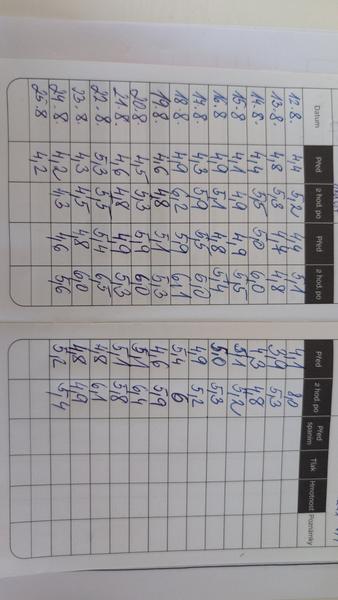 Datum Před 2 hod. po Před 2 hod. po Před 2 hod. po Před spaním Tlak Hmotnost Poznámky
12.8. 4,4 5,2 5,1 4,1 8,0
13.8. 4,8 5,8 4,7 4,8 5,3
14.8. 4,4 5,0 6,0 4,3 4,8
15.8. 4,1 4,9 4,9 5,5 5,1 5,2
16.8. 4,9 5,1 4,8 5,4 5,0 5,3
17.8. 4,3 5,9 5,5 5,0 4,9 5,2
18.8. 4,9 6,2 5,9 6,1 5,4 6
19.8. 4,6 4,8 5,1 5,3 4,6 5,9
20.8. 4,5 5,3 5,9 6,0 5,1 6,4
21.8. 4,6 4,8 4,9 5,3 5,1 5,8
22.8. 5,3 5,4 6,5 4,8 6,1
23.8. 4,3 4,5 4,8 6,0 4,8 4,9
24.8. 4,2 4,3 4,6 5,6 5,2 5,4
25.8. 4,2